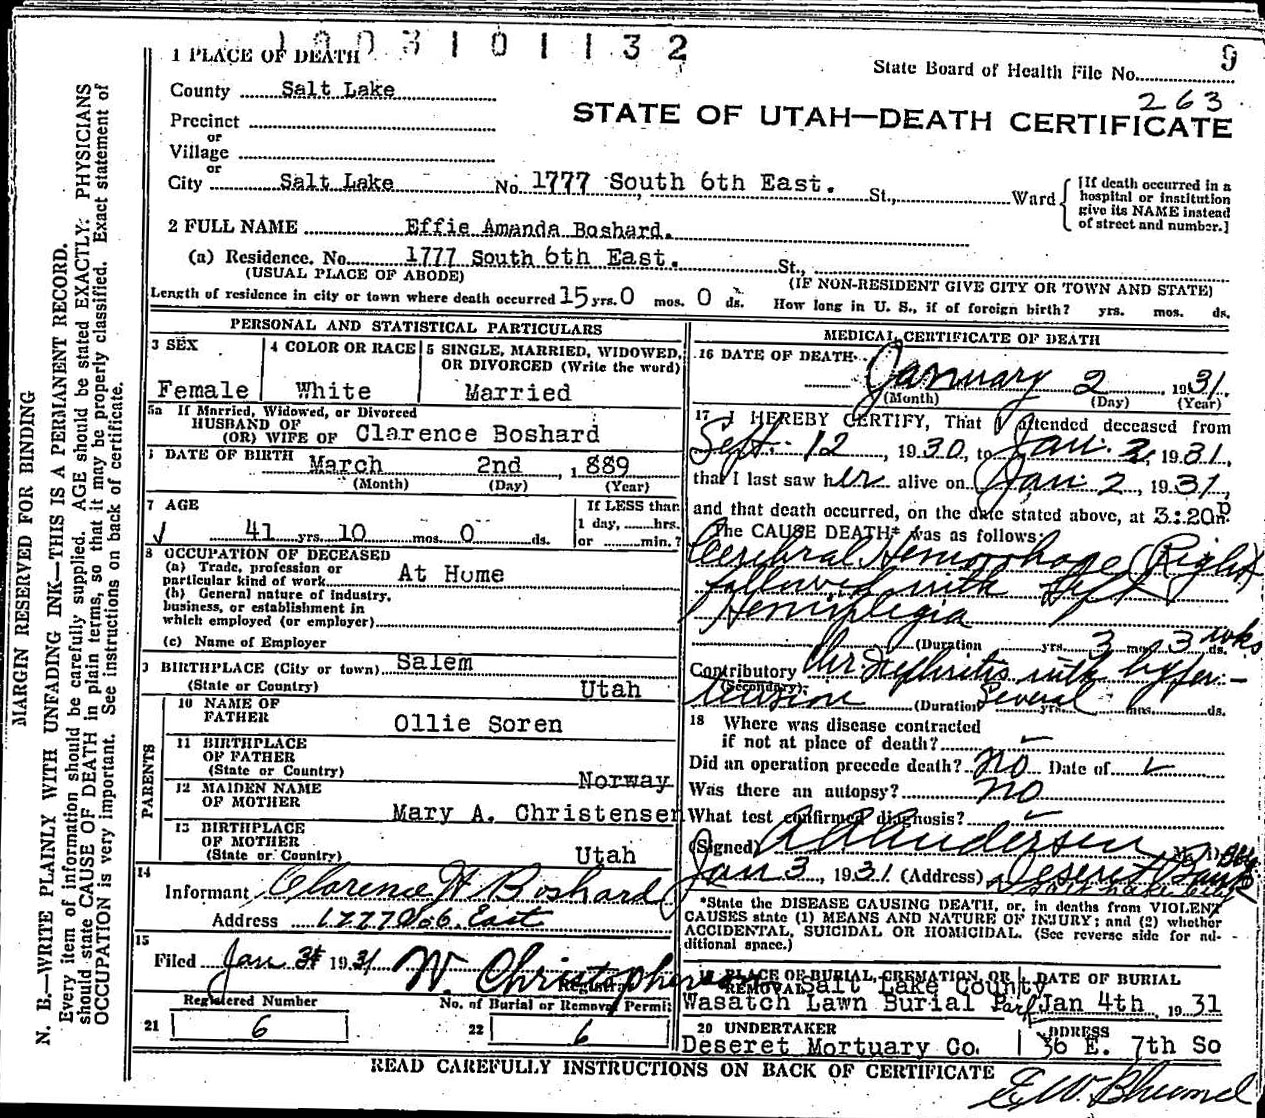 1003101132
9
1 PLACE OF DEATH
State Board of Health File No.
County Salt Lake
263
STATE OF UTAH—DEATH CERTIFICATE
Precinct
or
Village
or
City Salt Lake No. 1777 South 6th East. St., Ward
[If death occurred in a hospital or institution give its NAME instead of street and number.]
2 FULL NAME Effie Amanda Boshard.
(a) Residence. No. 1777 South 6th East. St.,
(USUAL PLACE OF ABODE) (IF NON-RESIDENT GIVE CITY OR TOWN AND STATE)
Length of residence in city or town where death occurred 15 yrs. 0 mos. 0 ds. How long in U. S., if of foreign birth? yrs. mos. ds.
PERSONAL AND STATISTICAL PARTICULARS
3 SEX
Female
4 COLOR OR RACE
White
5 SINGLE, MARRIED, WIDOWED,
OR DIVORCED (Write the word)
Married
5a If Married, Widowed, or Divorced
HUSBAND OF
(OR) WIFE OF Clarence Boshard
DATE OF BIRTH March 2nd , 1889
(Month) (Day) (Year)
7 AGE
41 yrs. 10 mos. 0 ds.
If LESS than
1 day, hrs.
or min.?
8 OCCUPATION OF DECEASED
(a) Trade, profession or
particular kind of work At Home
(b) General nature of industry,
business, or establishment in
which employed (or employer)
(c) Name of Employer
9 BIRTHPLACE (City or town) Salem
(State or Country) Utah
PARENTS
10 NAME OF
FATHER Ollie Soren
11 BIRTHPLACE
OF FATHER
(State or Country) Norway
12 MAIDEN NAME
OF MOTHER Mary A. Christensen
13 BIRTHPLACE
OF MOTHER
(State or Country) Utah
14
Informant Clarence H Boshard
Address 1777 So 6 East
15
Filed Jan 3 1931 W. Christopherson
Registrar
Registered Number
21 6
No. of Burial or Removal Permit
22 6
MEDICAL CERTIFICATE OF DEATH
16 DATE OF DEATH
January 2 1931
(Month) (Day) (Year)
17 I HEREBY CERTIFY, That I attended deceased from
Sept. 12, 1930, to Jan. 2, 1931,
that I last saw her alive on Jan 2, 1931,
and that death occurred, on the date stated above, at 3:20 p
The CAUSE DEATH* was as follows:
Cerebral Hemorrhage (Right)
followed with
Hemiplegia
(Duration yrs. 3 mos. 3 wks ds.
Contributory Chr. Nephritis with hyper-
(Secondary) tension (Duration Several yrs. mos. ds.
18 Where was disease contracted
if not at place of death?
Did an operation precede death? No Date of
Was there an autopsy? No
What test confirmed diagnosis?
(Signed) Andersen M. D.
Jan 3, 1931 (Address) Deseret Bank Bldg
Salt Lake City
*State the DISEASE CAUSING DEATH, or, in deaths from VIOLENT
CAUSES state (1) MEANS AND NATURE OF INJURY; and (2) whether
ACCIDENTAL, SUICIDAL OR HOMICIDAL. (See reverse side for ad-
ditional space.)
19 PLACE OF BURIAL, CREMATION, OR
REMOVAL Salt Lake County
Wasatch Lawn Burial Park
DATE OF BURIAL
Jan 4th, 1931
20 UNDERTAKER
Deseret Mortuary Co.
ADDRESS
36 E. 7th So
READ CAREFULLY INSTRUCTIONS ON BACK OF CERTIFICATE
MARGIN RESERVED FOR BINDING
N. B.—WRITE PLAINLY WITH UNFADING INK—THIS IS A PERMANENT RECORD.
Every item of information should be carefully supplied. AGE should be stated EXACTLY. PHYSICIANS
should state CAUSE OF DEATH in plain terms, so that it may be properly classified. Exact statement of
OCCUPATION is very important. See instructions on back of certificate.